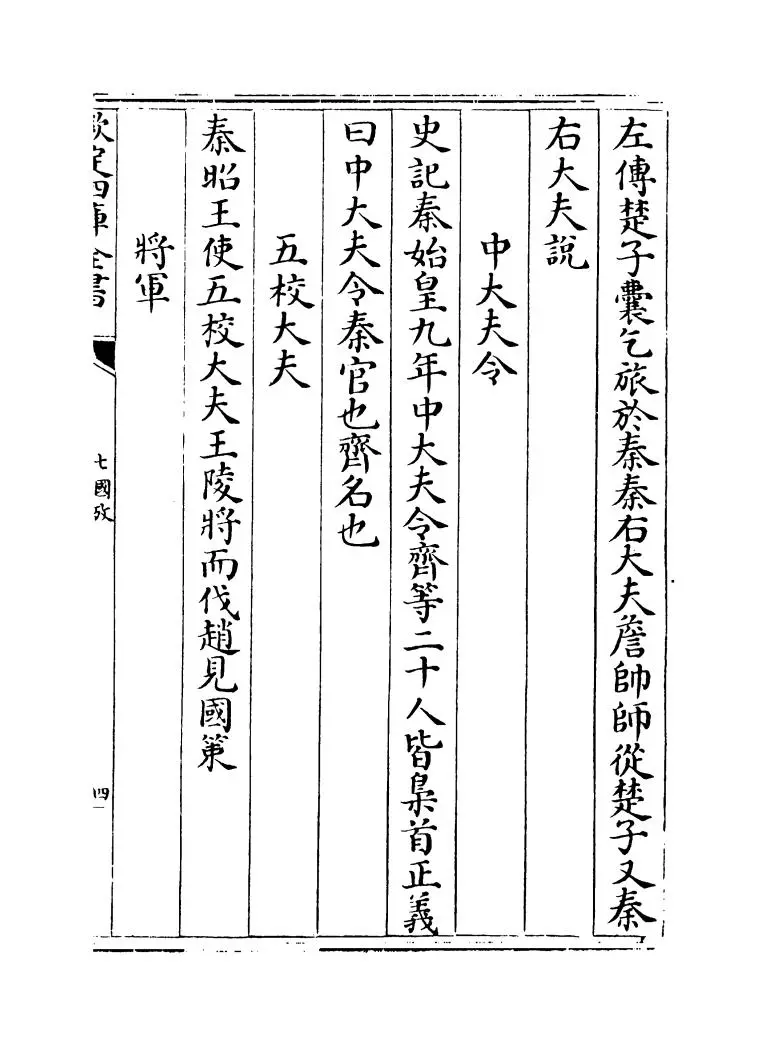 左傳楚子囊乞旅於秦秦右大夫詹帥師從楚子又秦
右大夫說
中大夫令
史記秦始皇九年中大夫令齊等二十人皆梟首正義
曰中大夫令秦官也齊名也
五校大夫
秦昭王使五校大夫王陵將而伐趙見國策
將軍
欽定四庫全書
七國攷
四